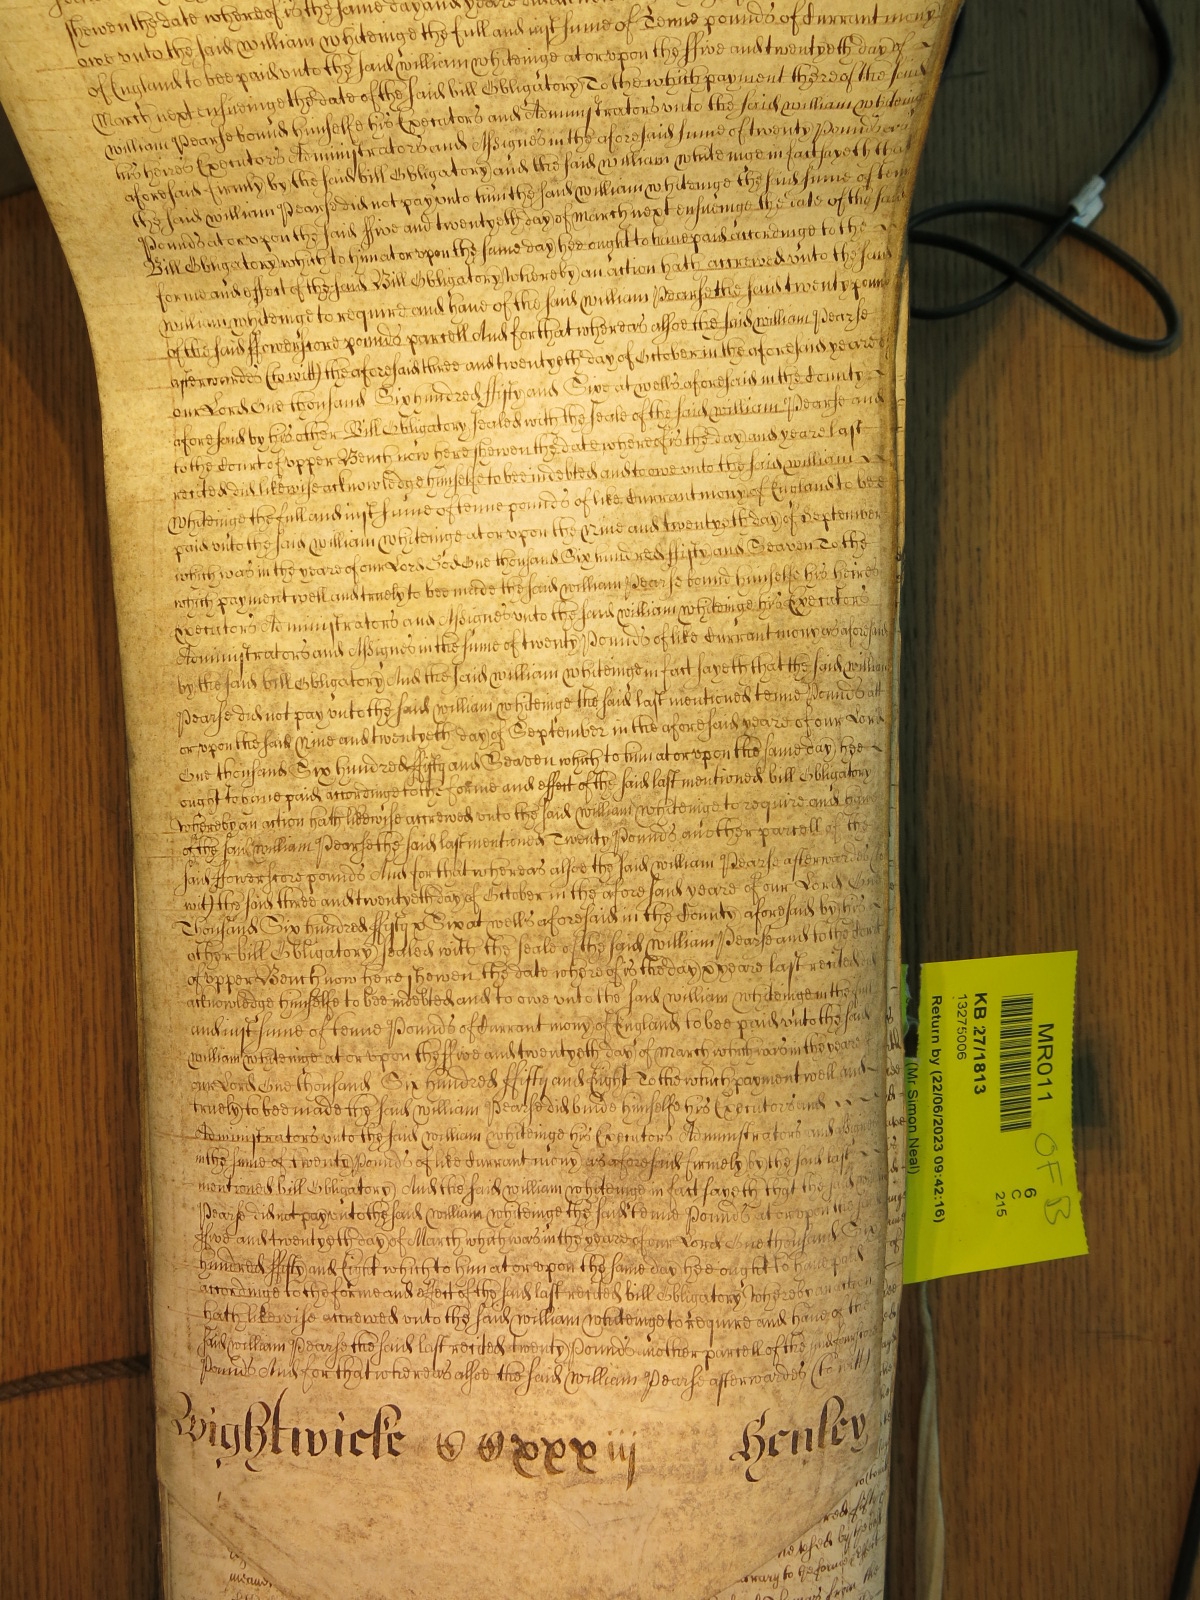 shewen the date whereof is the same day and yeare
owe unto the said William Whiteinge the full and iust sume of Tenne pounds of Currant mony
of England to bee paid unto the said William Whiteinge at or upon the ffive and twentyeth day of
March next ensueinge the date of the said bill Obligatory To the which payment thereof the said
William Pearse bound himselfe his Executors and Administrators unto the said William Whiteinge
his heires Executors Administrators and Assignes in the aforesaid sume of twenty Pounds
aforesaid firmly by the said bill Obligatory and the said William Whiteinge in fact sayeth that
the said William Pearse did not pay unto him the said William Whiteinge the said sume of tenn
Pounds at or upon the said ffive and twentyeth day of March next ensueinge the date of the said
Bill Obligatory which to him at or upon the same day hee ought to have paid accordinge to the
forme and effect of the said Bill Obligatory whereby an action hath accrewed unto the said
William Whiteinge to require and have of the said William Pearse the said twenty pounds
of the said ffowerscore pounds parcell And for that whereas alsoe the said William Pearse
afterwardes (to wit) the aforesaid three and twentyeth day of October in the aforesaid yeare of
our Lord One thousand Six hundred ffifty and Six at Wells aforesaid in the County
aforesaid by his other Bill Obligatory sealed with the seale of the said William Pearse and
to the Court of upper Bench now here shewen the date whereof is the day and yeare last
recited did likewise acknowledge himselfe to bee indebted and to owe unto the said William
Whiteinge the full and iust sume of tenne pounds of like Currant mony of England to bee
paid unto the said William Whiteinge at or upon the Nine and twentyeth day of September
which was in the yeare of our Lord God One thousand Six hundred ffifty and Seaven To the
which payment well and truely to bee made the said William Pearse bound himselfe his heires
Executors Administrators and Assignes unto the said William Whiteinge his Executors
Administrators and Assignes in the sume of twenty Pounds of like Currant mony as aforesaid
by the said bill Obligatory And the said William Whiteinge in fact sayeth that the said William
Pearse did not pay unto the said William Whiteinge the said last mentioned tenne Pounds att
or upon the said Nine and twentyeth day of September in the aforesaid yeare of our Lord
One thousand Six hundred ffifty and Seaven which to him at or upon the same day hee
ought to have paid accordinge to the forme and effect of the said last mentioned bill Obligatory
whereby an action hath likewise accrewed unto the said William Whiteinge to require and have
of the said William Pearse the said last mentioned Twenty Pounds another parcell of the
said ffowerscore pounds And for that whereas alsoe the said William Pearse afterwardes (to
wit) the said three and twentyeth day of October in the aforesaid yeare of our Lord One
Thousand Six hundred ffifty & Six at Wells aforesaid in the County aforesaid by his
other bill Obligatory sealed with the seale of the said William Pearse and to the Court
of upper Bench now here shewen the date whereof is the day & yeare last recited
acknowledge himselfe to bee indebted and to owe unto the said William Whiteinge in the full
and iust sume of tenne Pounds of Currant mony of England to bee paid unto the said
William Whiteinge at or upon the ffive and twentyeth day of March which was in the yeare
our Lord One thousand Six hundred ffifty and Eight To the which payment well and
truely to bee made the said William Pearse did binde himselfe his Executors and
Administrators unto the said William Whiteinge his Executors Administrators and Assignes
in the sume of twenty Pounds of like Currant mony as aforesaid firmely by the said last
mentioned bill Obligatory And the said William Whiteinge in fact sayeth that the said William
Pearse did not pay unto the said William Whiteinge the said tenne Pounds at or upon the said
ffive and twentyeth day of March which was in the yeare of our Lord One thousand Six
hundred ffifty and Eight which to him at or upon the same day hee ought to have paid
accordinge to the forme and effect of the said last recited bill Obligatory whereby an action
hath likewise accrewed unto the said William Whiteinge to require and have of the
said William Pearse the said last recited twenty Pounds another parcell of the said ffowerscore
Pounds And for that whereas alsoe the said William Pearse afterwardes (to wit)
Wightwicke CCxxxiij Henley
MR011
KB 27/1813
13275006
Return by (22/06/2023 09:42:16)
(Mr Simon Neal)
6
C
215
OFB